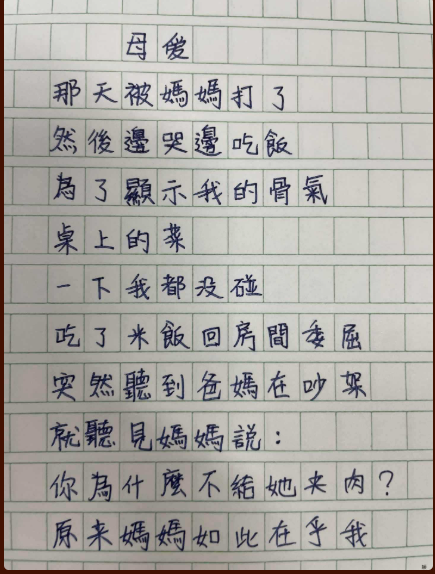 母爱
那天被媽媽打了
然後邊哭邊吃飯
為了顯示我的骨氣
桌上的菜
一下我都没碰
吃了米飯回房間委屈
突然聽到爸媽在吵架
就聽見媽媽說：
你為什麼不給她夹肉？
原来媽媽如此在乎我